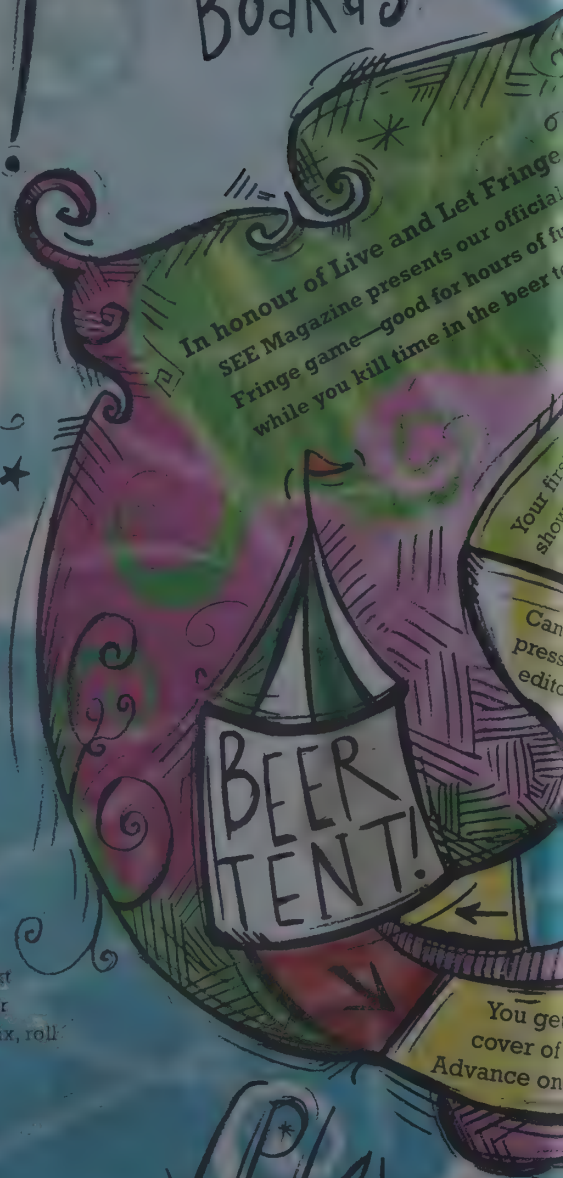 In honour of Live and Let Fringe
SEE Magazine presents our official
Fringe game—good for hours of
while you kill time in the beer
Your
Can
BEER
TENT!
You
cover of
Advance on
roll
Play